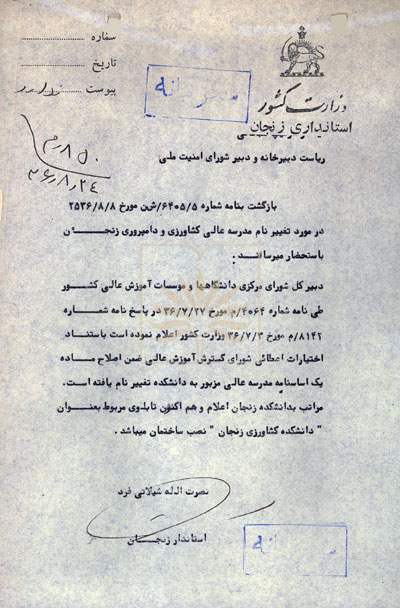 شماره
تاریخ
پیوست ندارد
محرمانه
وزارت کشور
استانداری زنجان
۸۵۰م
۳۶٫۸٫۲۴
ریاست دبیرخانه و دبیر شورای امنیت ملی
بازگشت بنامه شماره ۶۴۰۵/۵/ش‌ن مورخ ۲۵۳۶/۸/۸
در مورد تغییر نام مدرسه عالی کشاورزی و دامپروری زنجان
باستحضار میرساند :
دبیر کل شورای مرکزی دانشگاهها و موسسات آموزش عالی کشور
طی نامه شماره ۴۰۶۴/م مورخ ۳۶/۷/۲۷ در پاسخ نامه شماره
۸۱۴۲/م مورخ ۳۶/۷/۳ وزارت کشور اعلام نموده است باستناد
اختیارات اعطائی شورای گسترش آموزش عالی ضمن اصلاح ماده
یک اساسنامه مدرسه عالی مزبور به دانشکده تغییر نام یافته است.
مراتب بدانشکده زنجان اعلام و هم اکنون تابلوی مربوط بعنوان
" دانشکده کشاورزی زنجان " نصب ساختمان میباشد .
نصرت اله شیلاتی فرد
استاندار زنجان
محرمانه